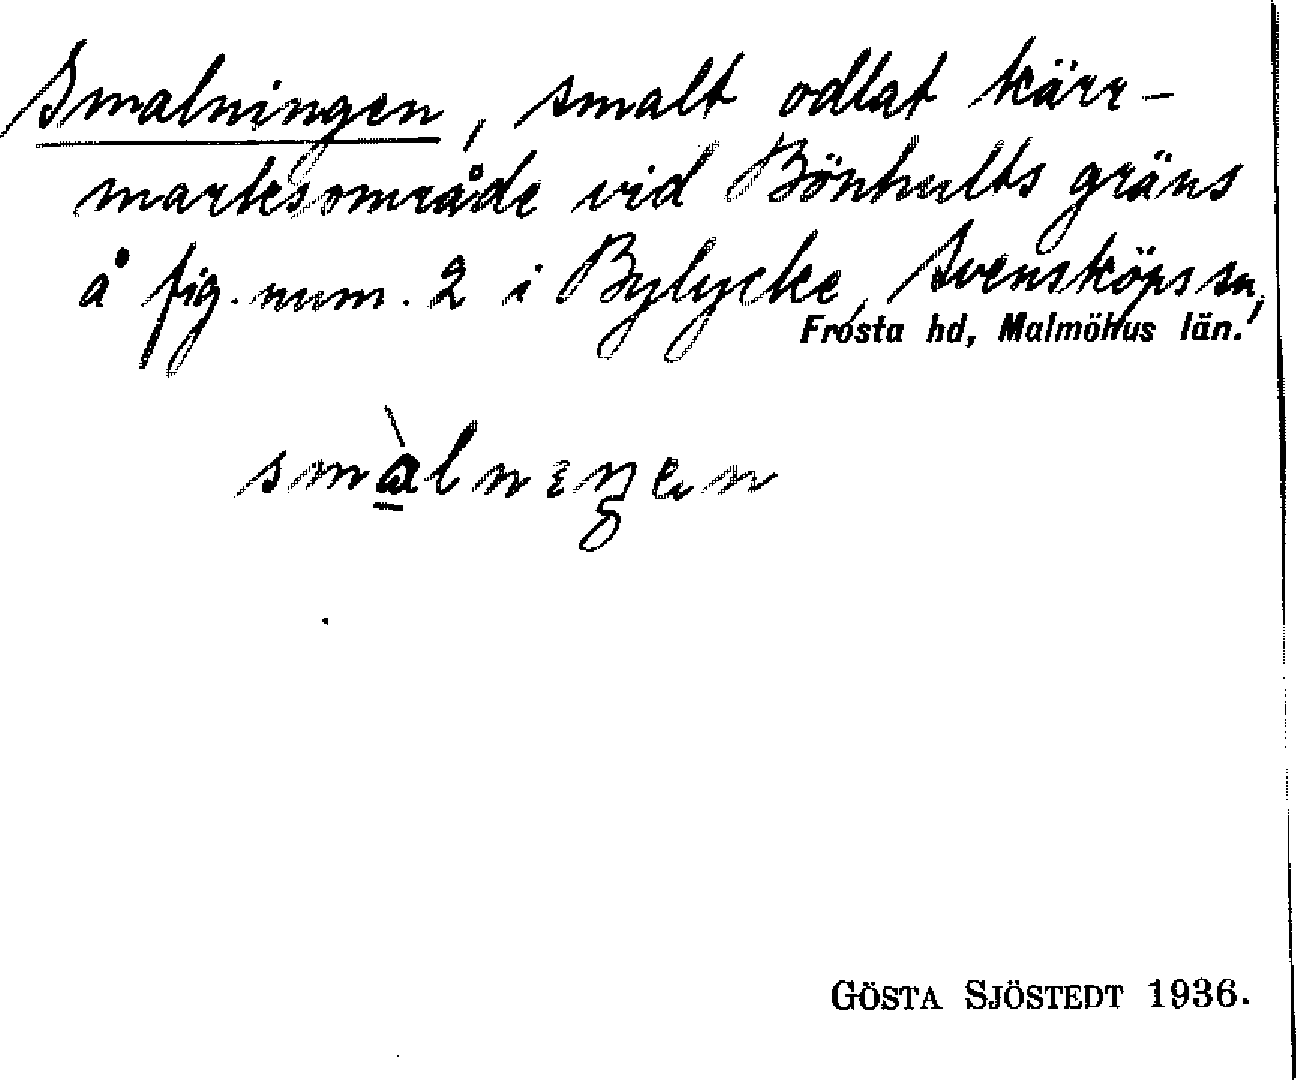 Smalningen, smalt odlat kärr-
marksområde vid Bönhults gräns
å fig. num. 2 i Bylycke, Svensköps sn,
Frosta hd, Malmöhus län.
smàlnɛŋen
GÖSTA SJÖSTEDT 1936.